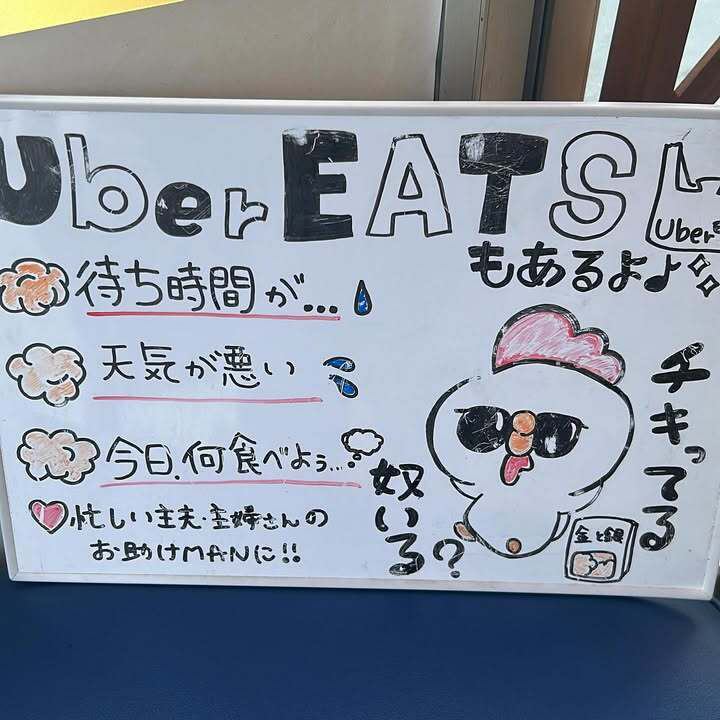 Uber EATS
Uber
もあるよ♪
待ち時間が...
天気が悪い
今日、何食べよう...
忙しい主夫・主婦さんの
お助けMANに!!
チキってる
奴いる?
金と銀